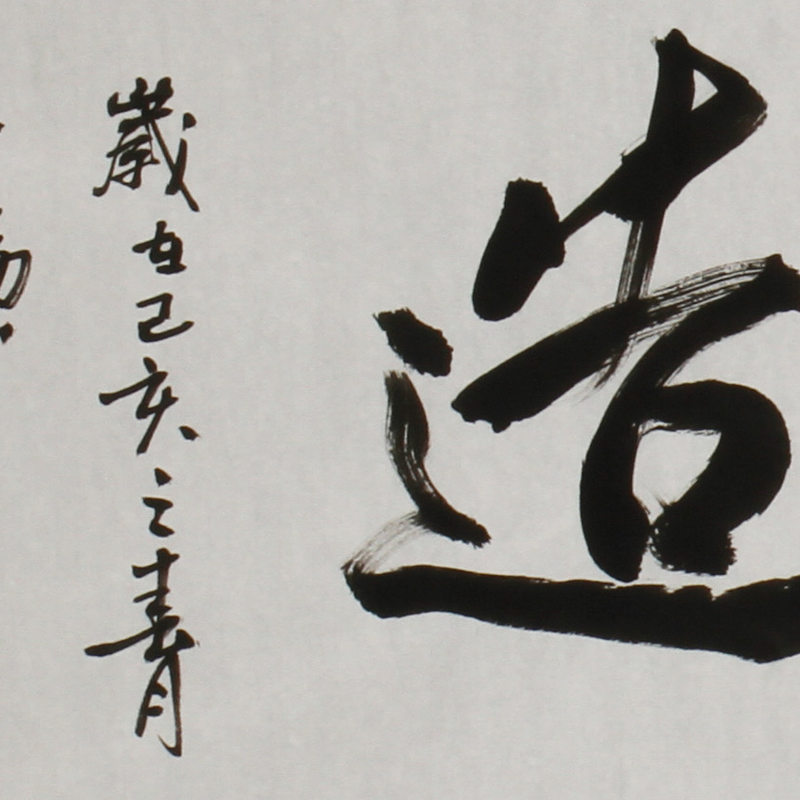 造
歲在己亥之青